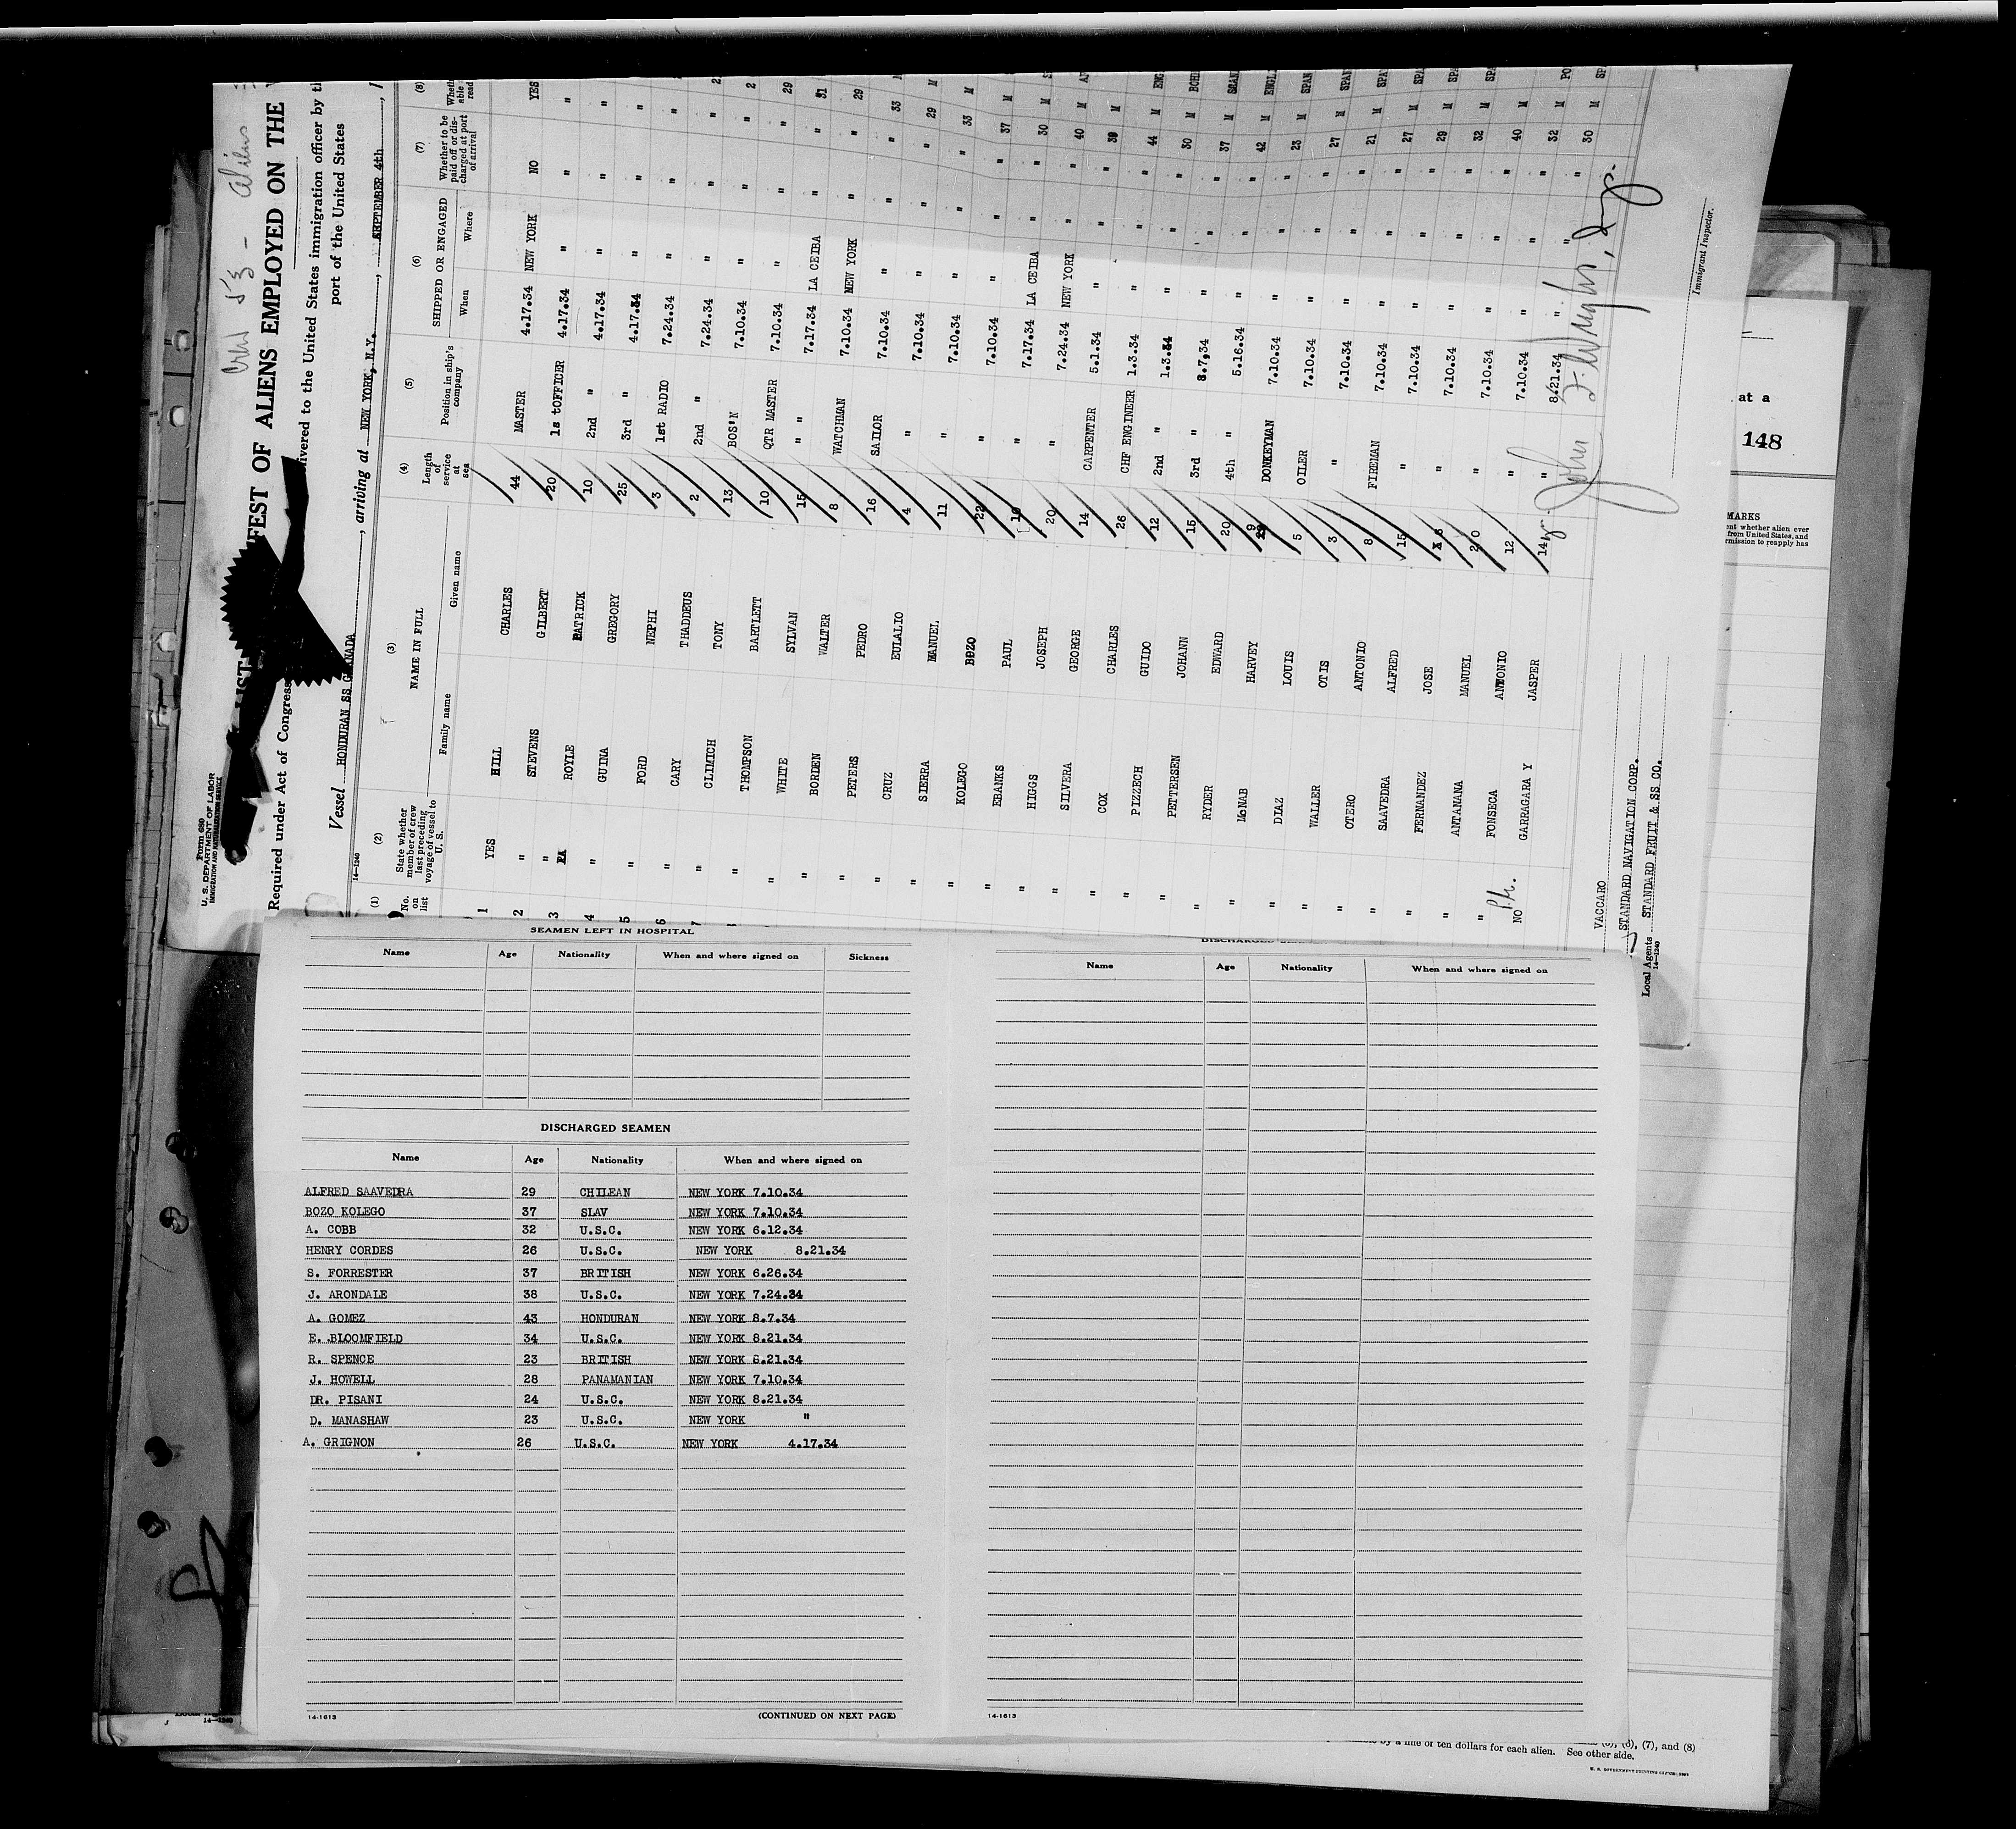 Crew 53 - Aliens
Form 680
U. S. DEPARTMENT OF LABOR
IMMIGRATION AND NATURALIZATION SERVICE
FEST OF ALIENS EMPLOYED ON THE
Required under Act of Congress
livered to the United States immigration officer by th
port of the United States
Vessel HONDURAN SS GRANADA, arriving at NEW YORK, N.Y., SEPTEMBER 4th, 1
14-1240
(1) No. on list
(2) State whether member of crew last preceding voyage of vessel to U. S.
(3) NAME IN FULL
Family name Given name
(4) Length of service at sea
(5) Position in ship's company
(6) SHIPPED OR ENGAGED
When Where
(7) Whether to be paid off or discharged at port of arrival
(8) Wheth able read
1 YES HILL CHARLES 44 MASTER 4.17.34 NEW YORK NO YES
2 " STEVENS GILBERT 20 1s tOFFICER 4.17.34 " " "
3 " ROYLE PATRICK 10 2nd " 4.17.34 " " "
4 " GUINA GREGORY 25 3rd " 4.17.34 " " "
5 " FORD NEPHI 3 1st RADIO 7.24.34 " " "
6 " CARY THADDEUS 2 2nd " 7.24.34 " " "
7 " CLIMICH TONY 13 BOS'N 7.10.34 " " "
" THOMPSON BARTLETT 10 QTR MASTER 7.10.34 " " " 29
" WHITE SYLVAN 15 " " 7.17.34 LA CEIBA " " 31
" BORDEN WALTER 8 WATCHMAN 7.10.34 NEW YORK " " 29
" PETERS PEDRO 16 SAILOR 7.10.34 " " " 33
" CRUZ EULALIO 4 " 7.10.34 " " " 29 M
" SIERRA MANUEL 11 " 7.10.34 " " " 33 M
" KOLEGO BOZO 22 " 7.10.34 " " " 37 M
" EBANKS PAUL 10 " 7.17.34 LA CEIBA " " 30 M
" HIGGS JOSEPH 20 " 7.24.34 NEW YORK " " 40 M
" SILVERA GEORGE 14 CARPENTER 5.1.34 " " " 39 M
" COX CHARLES 26 CHF ENGINEER 1.3.34 " " " 44 M ENG
" PIZZECH GUIDO 12 2nd " 1.3.34 " " " 30 M BOHE
" PETTERSEN JOHANN 15 3rd " 8.7.34 " " " 37 M SCAND
" RYDER EDWARD 20 4th " 5.16.34 " " " 42 M ENGL
" McNAB HARVEY 9 DONKEYMAN 7.10.34 " " " 23 M SPAN
" DIAZ LOUIS 5 OILER 7.10.34 " " " 27 M SPAN
" WALLER OTIS 3 " 7.10.34 " " " 21 M SPA
" OTERO ANTONIO 8 FIREMAN 7.10.34 " " " 27 M SPA
" SAAVEDRA ALFRED 15 " 7.10.34 " " " 29 M SPA
" FERNANDEZ JOSE X 6 " 7.10.34 " " " 32 M SPA
" ANTANANA MANUEL 20 " 7.10.34 " " " 40 M
" FONSECA ANTONIO 12 " 7.10.34 " " " 32 M PO
NO GARRAGARA Y JASPER 14 " 8.21.34 " " " 30 M SP
John F. Wright, Insp.
Immigrant Inspector.
VACCARO
STANDARD NAVIGATION CORP.
Local Agents STANDARD FRUIT & SS CO.
14-1240
at a
148
MARKS
ent whether alien ever
from United States, and
rmission to reapply has
SEAMEN LEFT IN HOSPITAL
Name Age Nationality When and where signed on Sickness
DISCHARGED SEAMEN
Name Age Nationality When and where signed on
ALFRED SAAVEDRA 29 CHILEAN NEW YORK 7.10.34
BOZO KOLEGO 37 SLAV NEW YORK 7.10.34
A. COBB 32 U.S.C. NEW YORK 6.12.34
HENRY CORDES 26 U.S.C. NEW YORK 8.21.34
S. FORRESTER 37 BRITISH NEW YORK 6.26.34
J. ARONDALE 38 U.S.C. NEW YORK 7.24.34
A. GOMEZ 43 HONDURAN NEW YORK 8.7.34
E. BLOOMFIELD 34 U.S.C. NEW YORK 8.21.34
R. SPENCE 23 BRITISH NEW YORK 8.21.34
J. HOWELL 28 PANAMANIAN NEW YORK 7.10.34
DR. PISANI 24 U.S.C. NEW YORK 8.21.34
D. MANASHAW 23 U.S.C. NEW YORK "
A. GRIGNON 26 U.S.C. NEW YORK 4.17.34
14-1613
(CONTINUED ON NEXT PAGE)
Name Age Nationality When and where signed on
14-1613
14-1240
by a fine of ten dollars for each alien. See other side.
(6), (7), and (8)